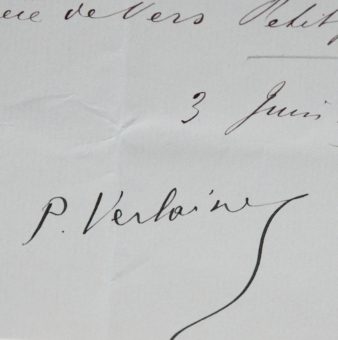 de Vers Petit
3 Juin
P. Verlaine